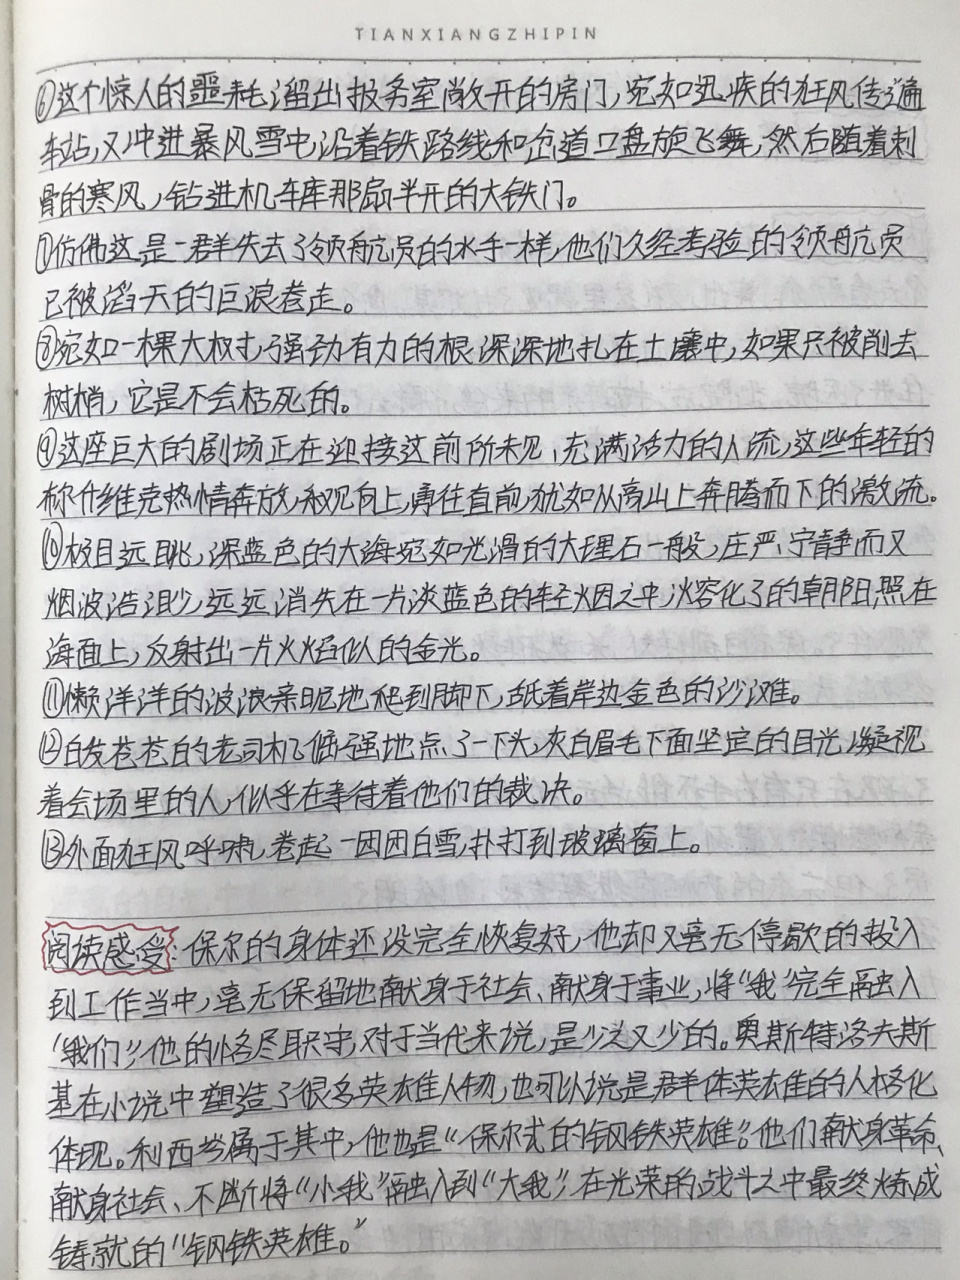 TIANXIANGZHIPIN
⑥这个惊人的噩耗溜出报务室尚敞开的房门,宛如迅疾的狂风传遍
车站,又冲进暴风雪中,沿着铁路线和岔道口盘旋飞舞,然后随着刺
骨的寒风,钻进机车库那扇半开的大铁门。
⑦仿佛这是一群失去了领航员的水手一样,他们久经考验的领航员
已被滔天的巨浪卷走。
⑧宛如一棵大树,强劲有力的根深深地扎在土壤中,如果只被削去
树梢,它是不会枯死的。
⑨这座巨大的剧场正在迎接这前所未见、充满活力的人流,这些年轻的
布尔什维克热情奔放,积极向上,勇往直前,犹如从高山上奔腾而下的激流。
⑩极目远眺,深蓝色的大海宛如光滑的大理石一般,庄严、宁静而又
烟波浩渺,远远消失在一片淡蓝色的轻烟之中,熔化了的朝阳照在
海面上,反射出一片火焰似的金光。
⑪懒洋洋的波浪亲昵地爬到脚下,舐着岸边金色的沙滩。
⑫白发苍苍的老司机倔强地点了一下头,灰白眉毛下面坚定的目光凝视
着会场里的人,似乎在等待着他们的裁决。
⑬外面狂风呼啸,卷起一团团白雪,扑打到玻璃窗上。
阅读感受:保尔的身体还没完全恢复好,他却又毫无停歇的投入
到工作当中,毫无保留地献身于社会、献身于事业,将“我”完全融入
“我们”,他的恪尽职守,对于当代来说,是少之又少的。奥斯特洛夫斯
基在小说中塑造了很多英雄人物,也可以说是群体英雄的人格化
体现。利西岑属于其中,他也是“保尔式的钢铁英雄”。他们献身革命、
献身社会、不断将“小我”融入到“大我”,在光荣的战斗之中最终炼成
铸就的“钢铁英雄。”